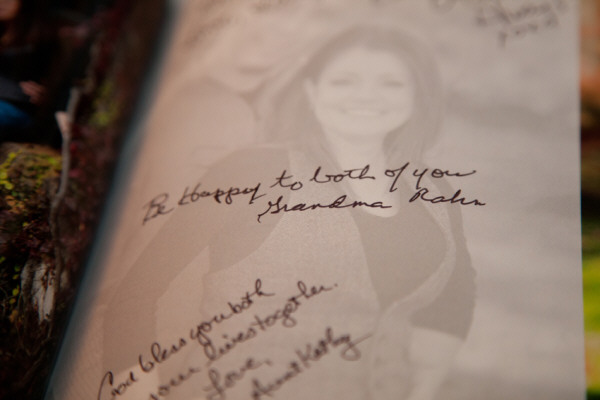 Be Happy to both of you
Grandma Rahn
God bless you both
your lives together.
Love,
Aunt Kathy